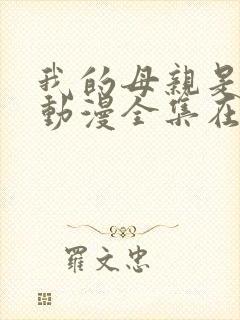 我的母親是
動漫全集在
羅文忠